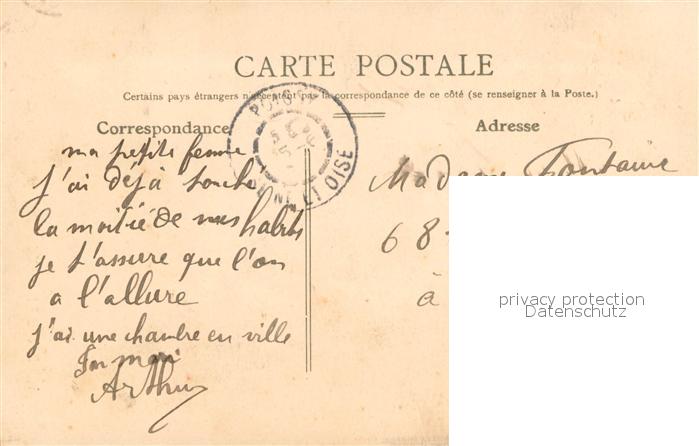 CARTE POSTALE
Certains pays étrangers n'acceptent pas la correspondance de ce côté (se renseigner à la Poste.)
Correspondance
ma petite femme
j'ai déjà touché
la moitié de mes habits
je t'assure que l'on
a l'allure
j'ai une chambre en ville
Ton mari
Arthur
POISSY
SEINE ET OISE
Adresse
Madame Fontaine
68
à
privacy protection
Datenschutz